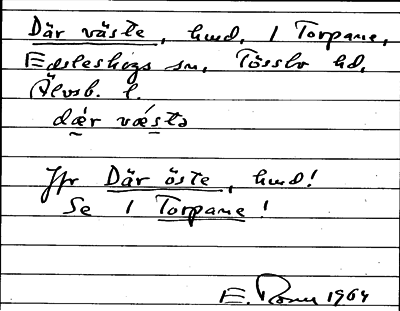 Där väste, hmd, 1 Torpane,
Edsleskogs sn, Tössbo hd,
Älvsb. l.
dǽr vǽstə
Jfr Där öste, hmd!
Se 1 Torpane!
E. 1964